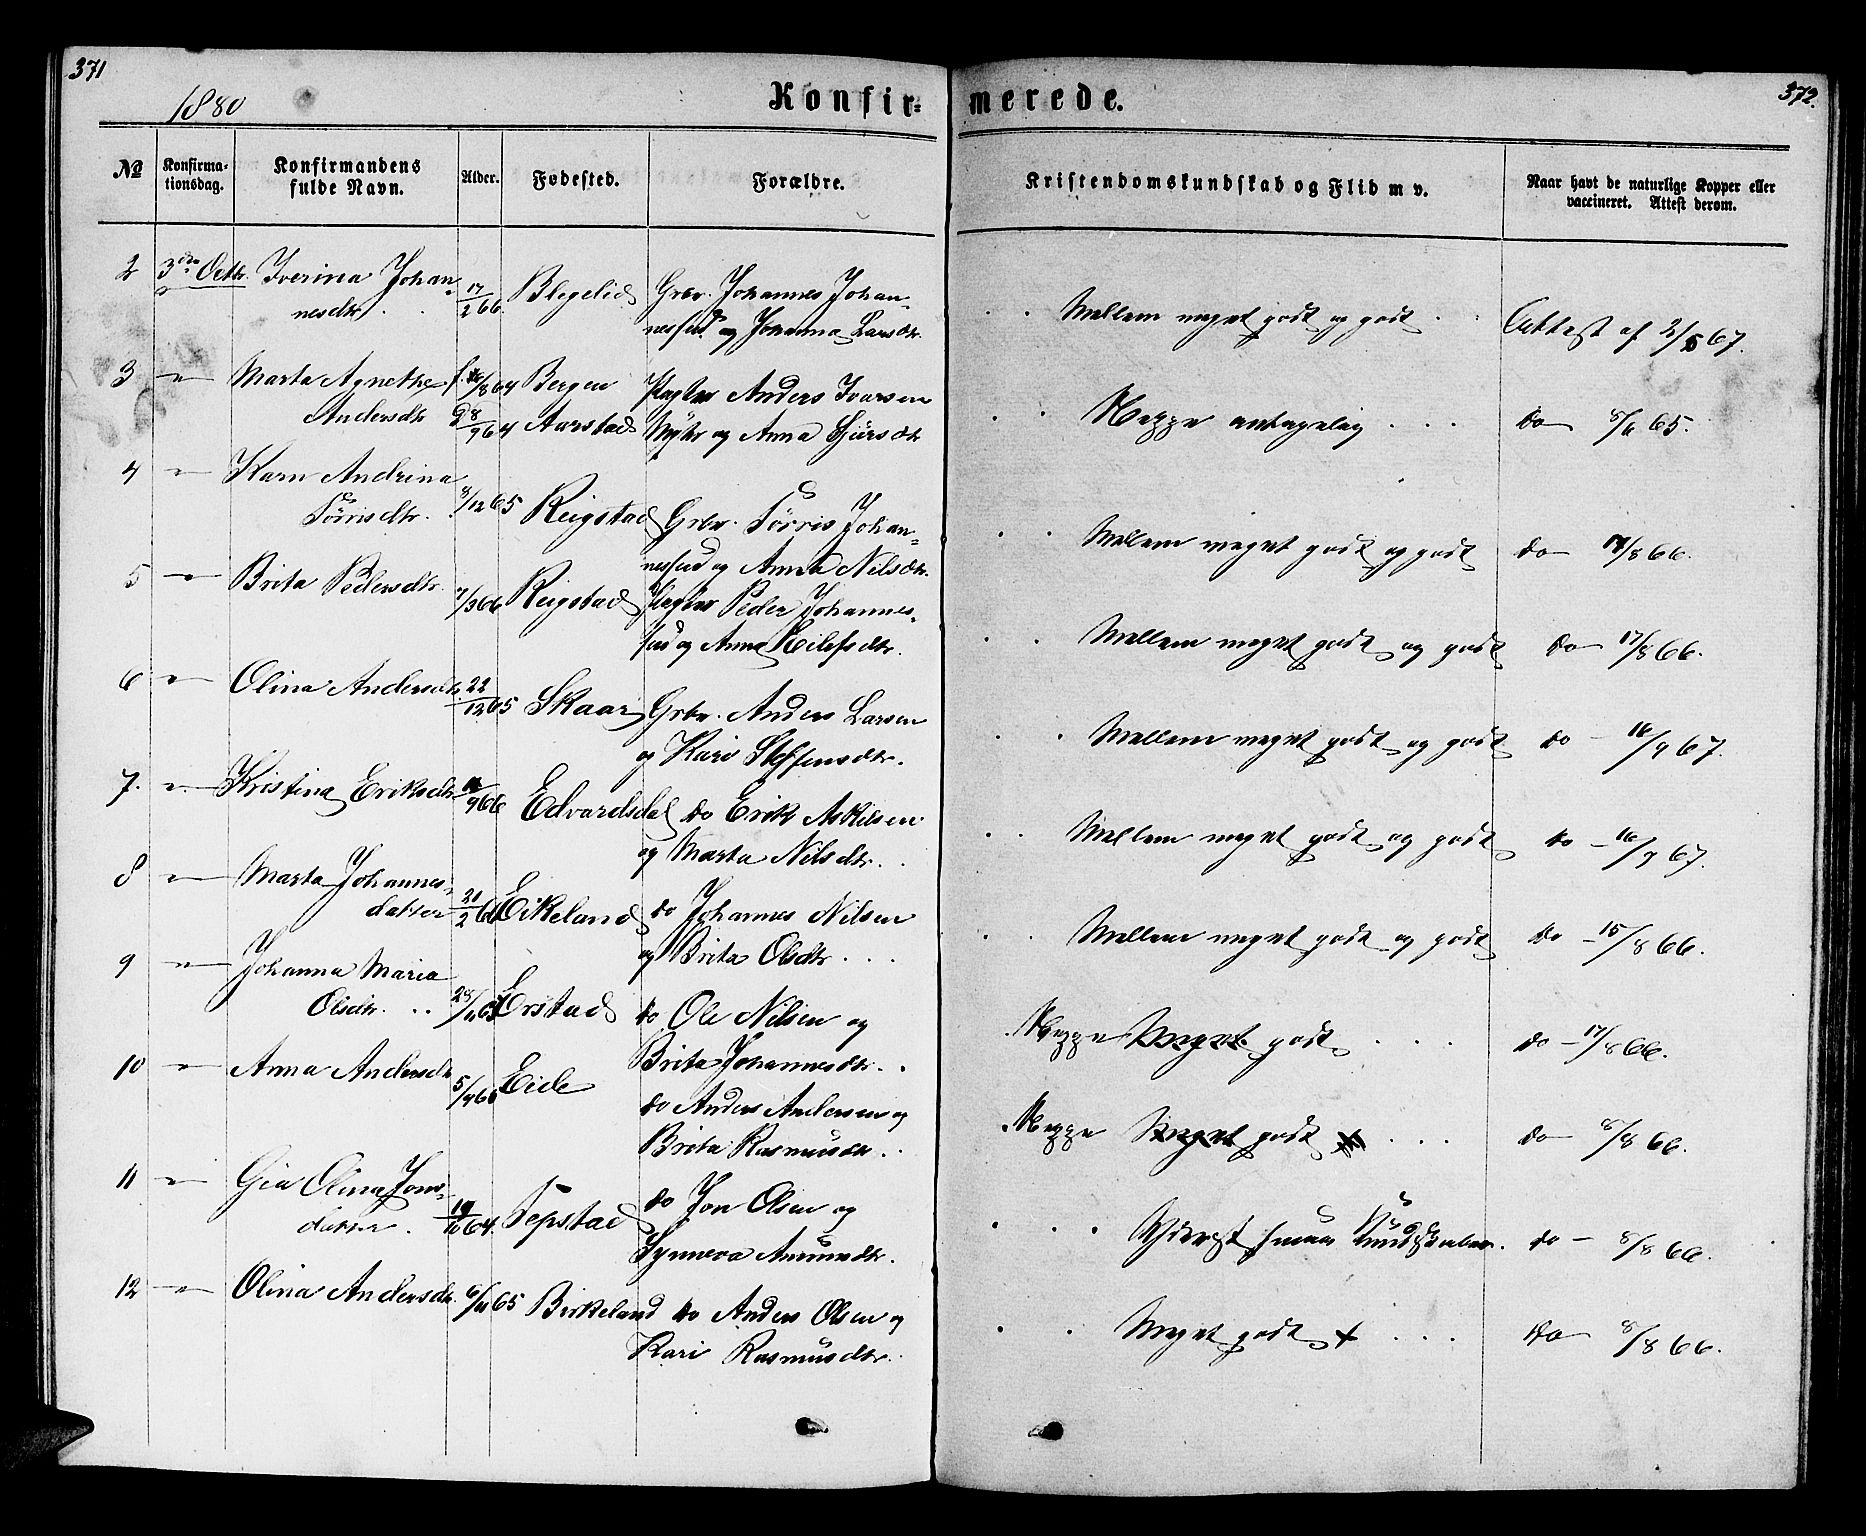 371
1880
Konfir-
merede.
372.
№
Konfirma-
tionsdag.
Konfirmandens
fulde Navn.
Alder.
Fødested.
Forældre.
Kristendomskundskab og Flid m v.
Naar havt de naturlige Kopper eller
vaccineret. Attest derom.
2 3die Octbr. Iverina Johan-
nesdtr. 17/2 66 Blegelid Grbr. Johannes Johan-
nessen og Johanna Larsdtr.
Mellem meget godt og godt Attest af 2/8 67.
3 " Marta Agnethe f. /8 64 Bergen Pagter Anders Ivarsen
Andersdtr 8/9 64 Aarstad og Anna Sjursdtr
Neppe antagelig do 8/6 65.
4 " Karn Andrina
Tørrisdtr. 8/12 65 Reigstad Grbr. Tørris Johan-
og Anna Nilsdtr.
Mellem meget godt og godt do /8 66.
5 " Brita Pedersdtr. 7/3 66 Reigstad Pagter Peder Johannes-
og Anna
Mellem meget godt og godt do 17/8 66.
6 " Olina Andersdtr 22/12 65 Skaar Grbr. Anders Larsen
og Kari Steffensdtr.
Mellem meget godt og godt do - 16/9 67.
7. " Kristina Eriksdtr /9 66 Edvardsdal do Erik Askilsen
og Marta Nilsdtr.
Mellem meget godt og godt do - 16/9 67.
8 " Marta Johannes-
datter 21/2 66 Eikeland do Johannes Nilsen
og Brita Olsdtr
Mellem meget godt og godt do - 15/8 66.
9 " Johanna Maria
Olsdtr. 28/11 65 Erstad do Ole Nilsen og
Brita Johannesdtr.
Neppe Meget godt do - 17/8 66.
10 " Anna Andersdtr 5/4 66 Eide do Anders Andersen og
Brita Rasmusdtr.
Neppe Meget godt do 8/8 66.
11 " Gia Olina Jons-
datter. 19/10 64. Tepstad do Jon Olsen og
Synneva Amundsdtr.
Yderst smaa Kundskaber. do - 8/8 66.
12 " Olina Andersdtr. 6/11 65 Birkeland do Anders Olsen og
Kari Rasmusdtr.
Meget godt do 8/8 66.